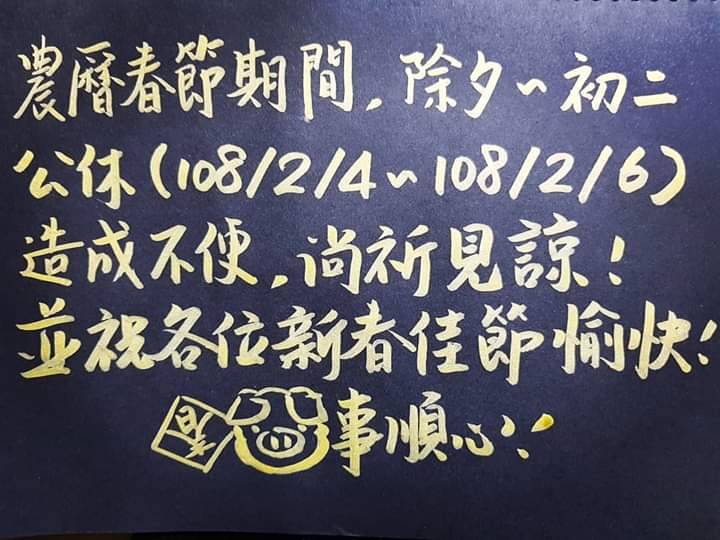 農曆春節期間,除夕~初二
公休(108/2/4~108/2/6)
造成不便,尚祈見諒!
並祝各位新春佳節愉快!
春 事順心!